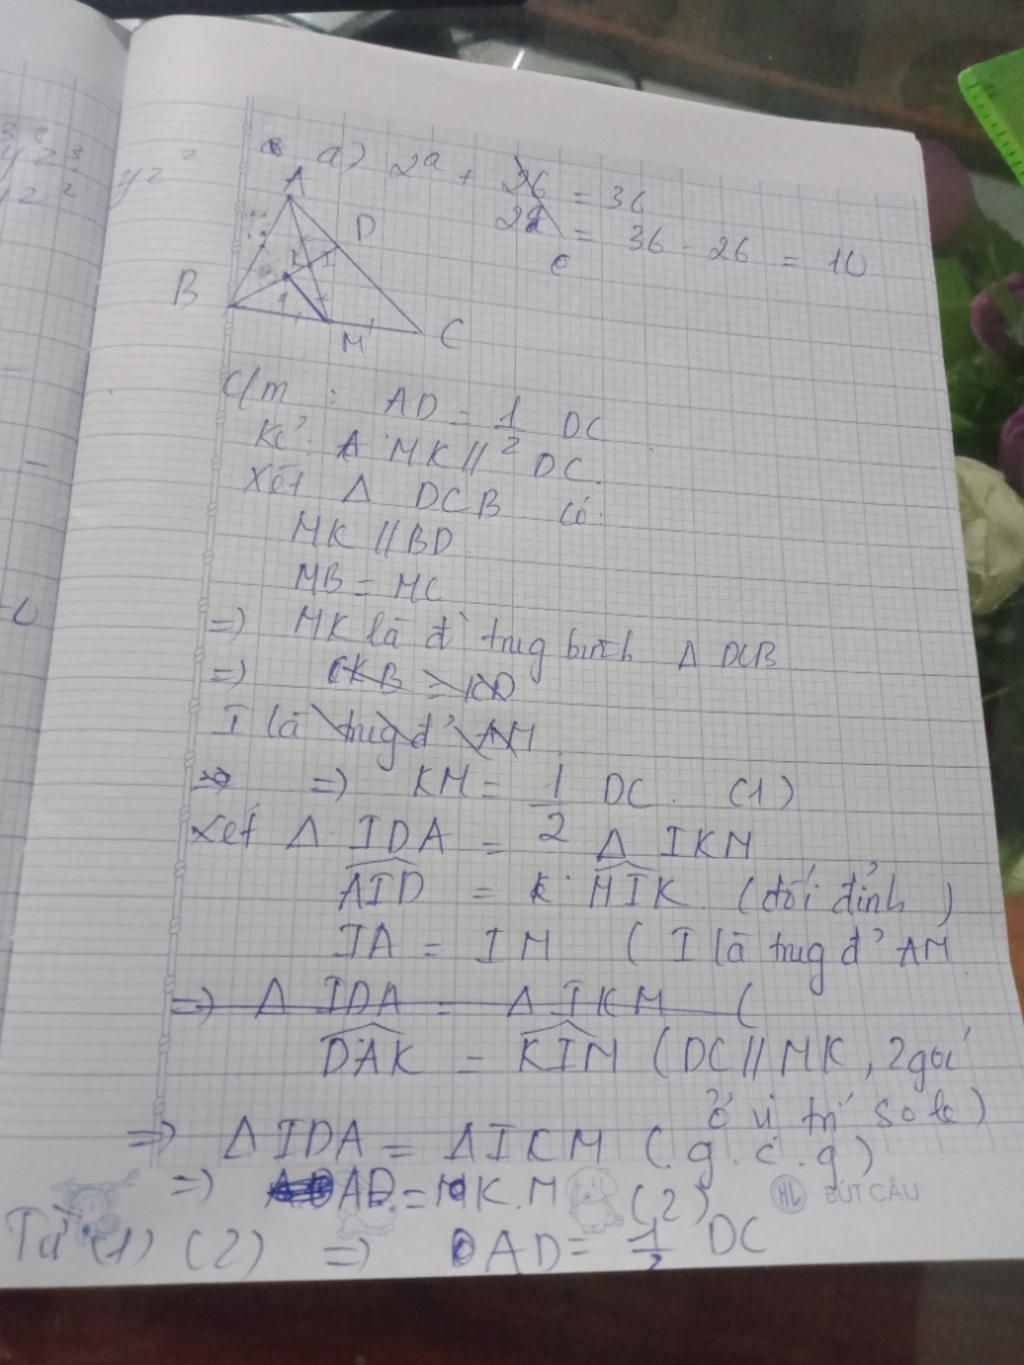 a) 2a + 26 = 36
22 = 36 - 26 = 10
A
D
K
I
B
M
C
C/m : AD = 1/2 DC
Kẻ : MK // DC.
Xét Δ DCB có:
MK // BD
MB = MC
=) MK là đ̀ trug bình Δ DCB
=) CKB = KD
I là trug đ' AM
=) KM = 1/2 DC. (1)
Xét Δ IDA = Δ IKM
AID = MIK (đối đỉnh)
IA = IM ( I là trug đ' AM
=) Δ IDA = Δ IKM (
DAK = KIM (DC // MK, 2 góc
ở vị trí so le)
=) Δ IDA = Δ IKM (g.c.g)
=) AD = K.M (2)
BÚT CÂU
Từ (1) (2) =) AD = 1/2 DC